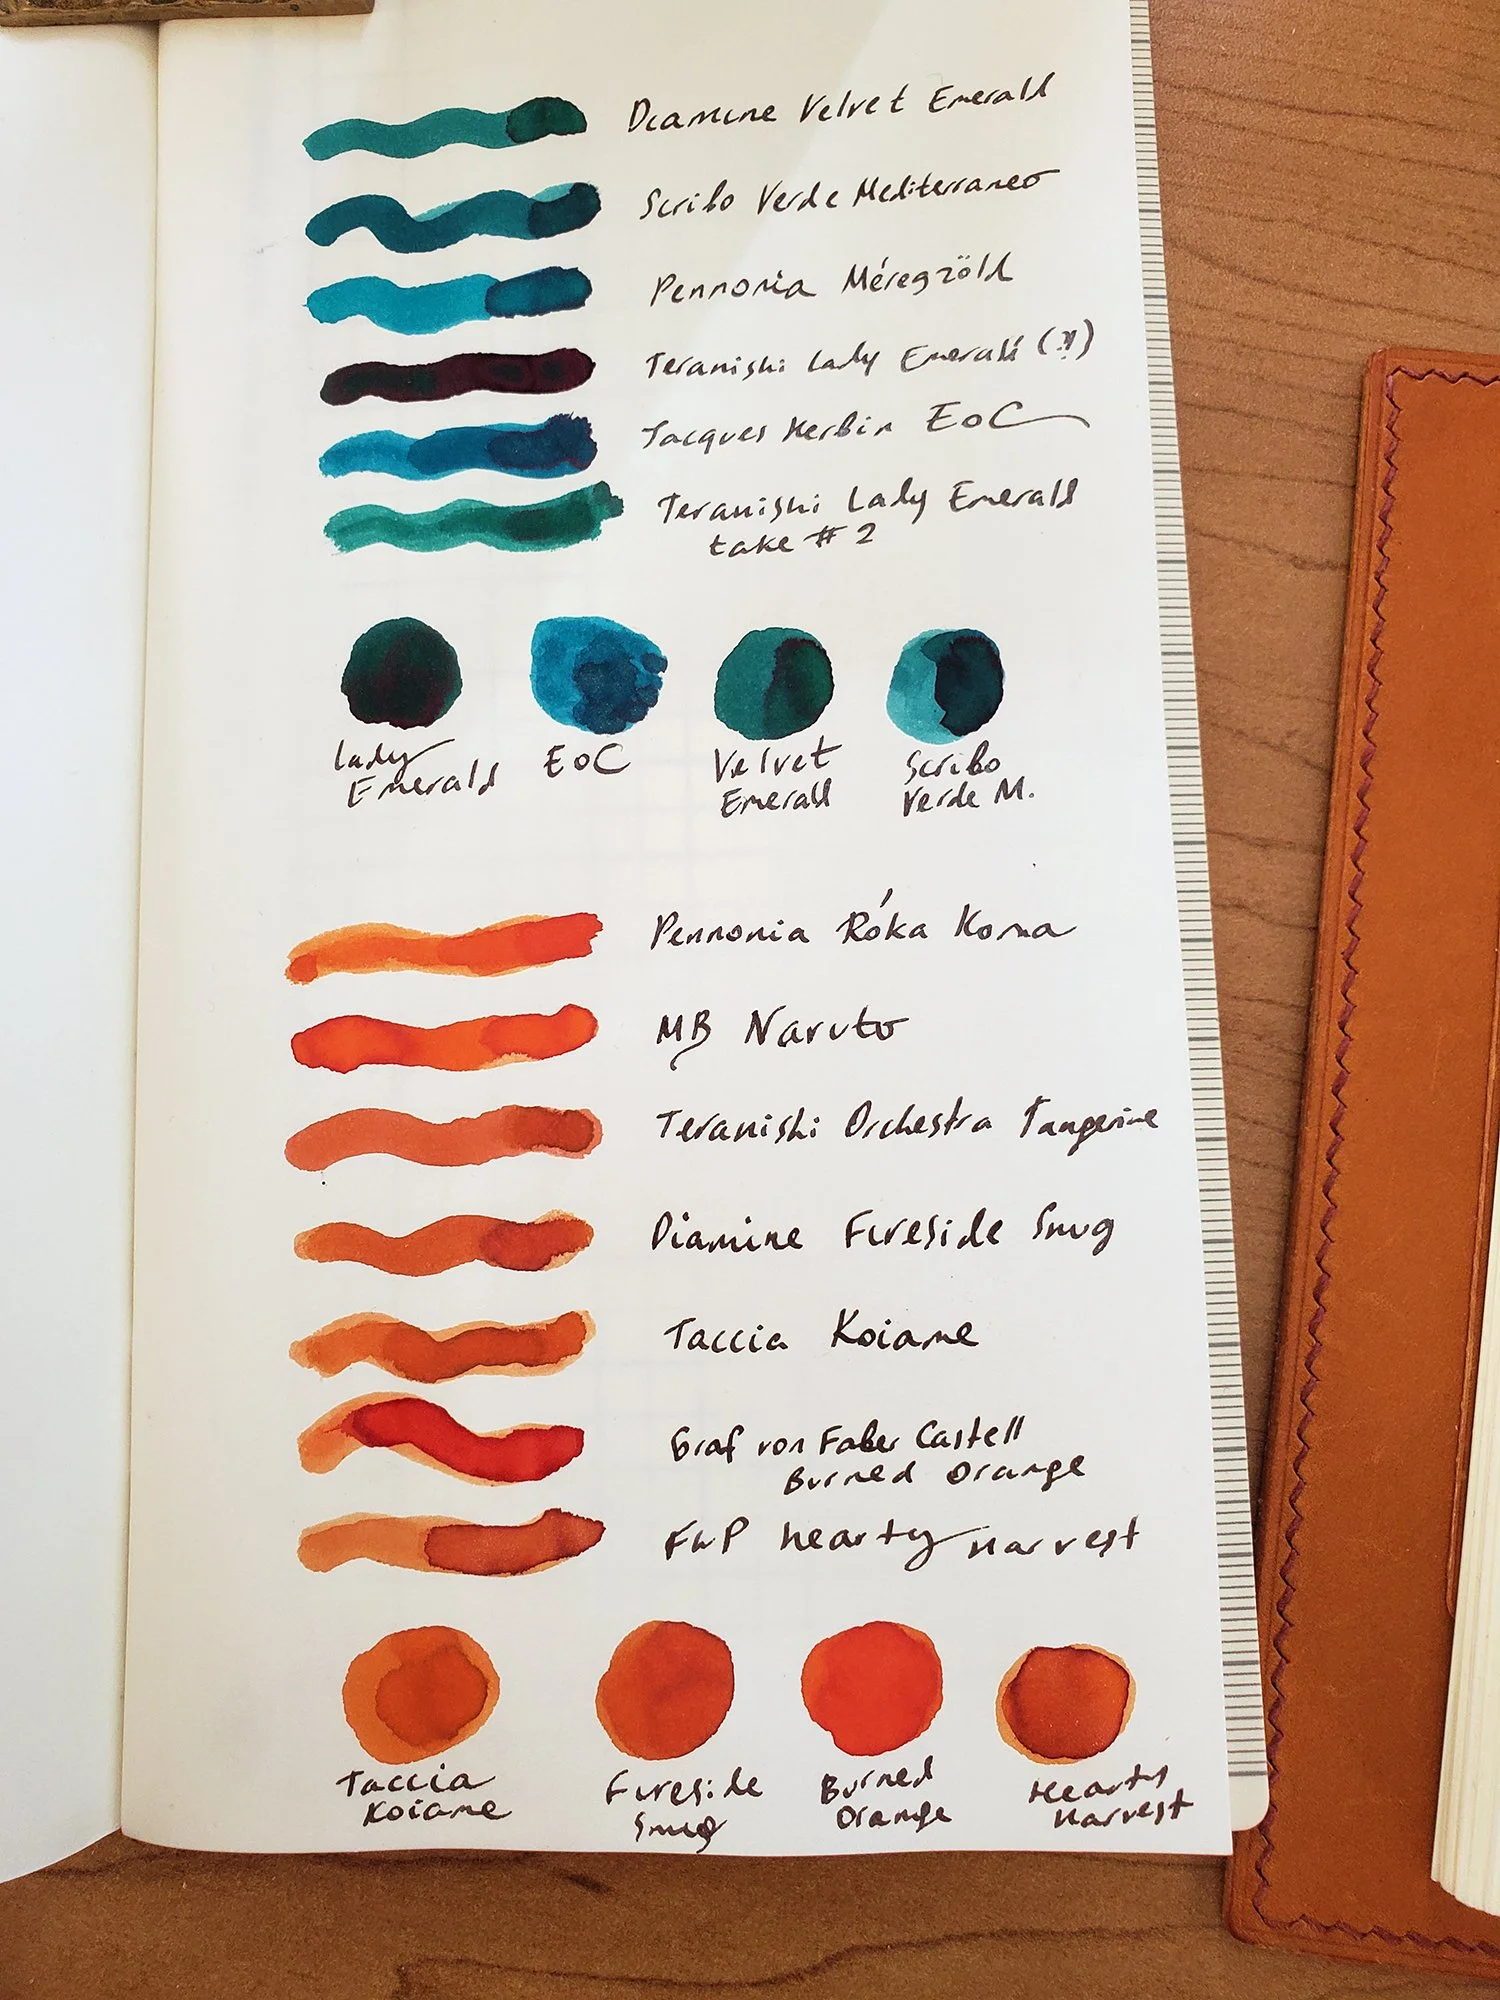 Diamine Velvet Emerald
Scribo Verde Mediterraneo
Pennonia Méregzöld
Teranishi Lady Emerald (?!)
Jacques Herbin EoC
Teranishi Lady Emerald
take #2
Lady
Emerald
EoC
Velvet
Emerald
Scribo
Verde M.
Pennonia Róka Koma
MB Naruto
Teranishi Orchestra Tangerine
Diamine Fireside Snug
Taccia Koiame
Graf von Faber Castell
Burned Orange
FWP Hearty Harvest
Taccia
Koiame
Fireside
Snug
Burned
Orange
Hearty
Harvest